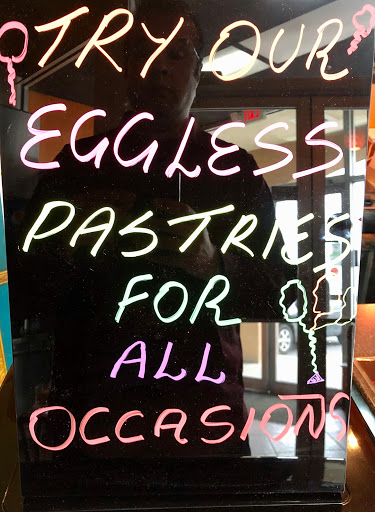 TRY OUR
EGGLESS
PASTRIES
FOR
ALL
OCCASIONS